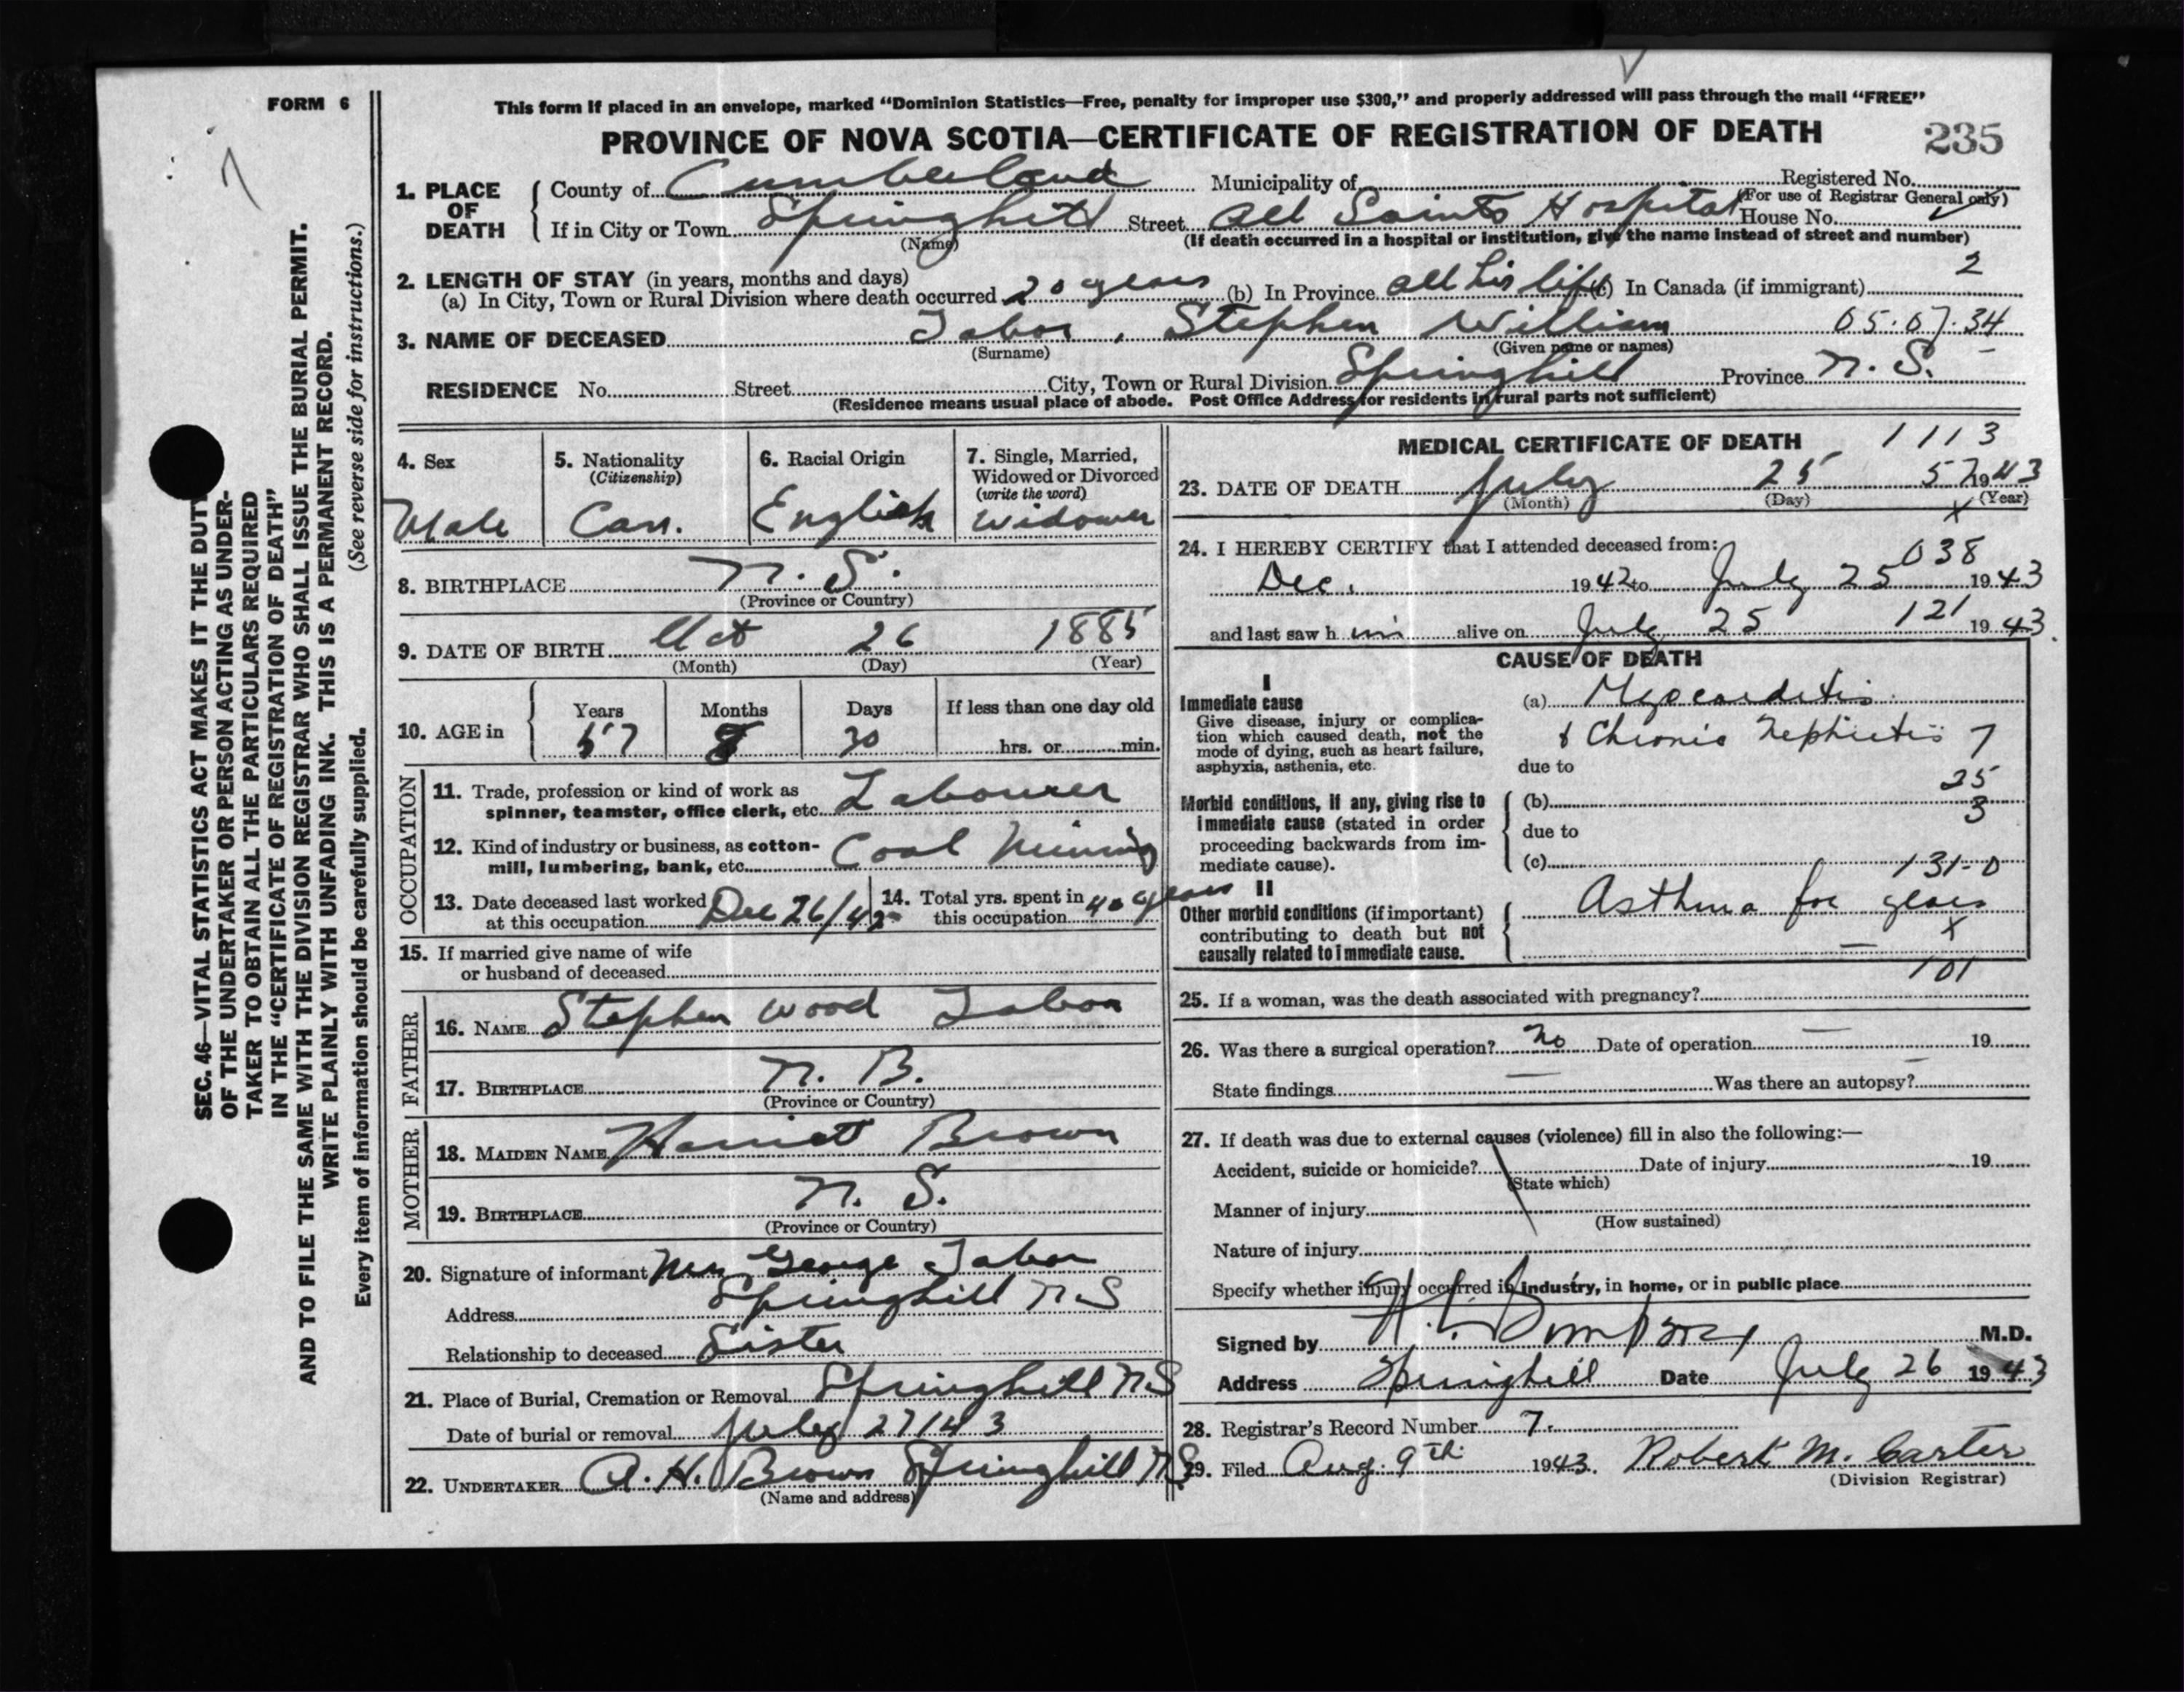 FORM 6
This form if placed in an envelope, marked “Dominion Statistics—Free, penalty for improper use $300,” and properly addressed will pass through the mail “FREE”
PROVINCE OF NOVA SCOTIA—CERTIFICATE OF REGISTRATION OF DEATH 235
7
1. PLACE OF DEATH
County of Cumberland Municipality of Registered No.
(For use of Registrar General only)
If in City or Town Springhill Street All Saints Hospital House No.
(Name) (If death occurred in a hospital or institution, give the name instead of street and number)
2. LENGTH OF STAY (in years, months and days) 2
(a) In City, Town or Rural Division where death occurred 20 years (b) In Province all his life (c) In Canada (if immigrant)
3. NAME OF DECEASED Tabor, Stephen William 05.07.34
(Surname) (Given name or names)
RESIDENCE No. Street City, Town or Rural Division Springhill Province N. S.
(Residence means usual place of abode. Post Office Address for residents in rural parts not sufficient)
4. Sex
Male
5. Nationality
(Citizenship)
Can.
6. Racial Origin
English
7. Single, Married,
Widowed or Divorced
(write the word)
Widower
8. BIRTHPLACE N. S.
(Province or Country)
9. DATE OF BIRTH Oct 26 1885
(Month) (Day) (Year)
10. AGE in
Years Months Days If less than one day old
57 8 30 hrs. or min.
OCCUPATION
11. Trade, profession or kind of work as
spinner, teamster, office clerk, etc. Labourer
12. Kind of industry or business, as cotton-
mill, lumbering, bank, etc. Coal Mining
13. Date deceased last worked
at this occupation Dec 26/42
14. Total yrs. spent in
this occupation 40 years
15. If married give name of wife
or husband of deceased
FATHER
16. NAME Stephen Wood Tabor
17. BIRTHPLACE N. B.
(Province or Country)
MOTHER
18. MAIDEN NAME Harriett Brown
19. BIRTHPLACE N. S.
(Province or Country)
20. Signature of informant Mrs George Tabor
Address Springhill N S
Relationship to deceased Sister
21. Place of Burial, Cremation or Removal Springhill N S
Date of burial or removal July 27/43
22. UNDERTAKER A. H. Brown Springhill N S.
(Name and address)
MEDICAL CERTIFICATE OF DEATH 1113
23. DATE OF DEATH July 25 57 1943
(Month) (Day) (Year)
X
24. I HEREBY CERTIFY that I attended deceased from: 038
Dec. 1942 to July 25 1943
and last saw h im alive on July 25 121 1943.
CAUSE OF DEATH
I
Immediate cause
Give disease, injury or complica-
tion which caused death, not the
mode of dying, such as heart failure,
asphyxia, asthenia, etc.
(a) Myocarditis
& Chronic Nephritis 7
due to
25
Morbid conditions, if any, giving rise to
immediate cause (stated in order
proceeding backwards from im-
mediate cause).
(b) 3
due to
(c) 131-0
II
Other morbid conditions (if important)
contributing to death but not
causally related to immediate cause.
Asthma for years
X
101
25. If a woman, was the death associated with pregnancy?
26. Was there a surgical operation? No Date of operation — 19
State findings — Was there an autopsy? —
27. If death was due to external causes (violence) fill in also the following:—
Accident, suicide or homicide? Date of injury 19
(State which)
Manner of injury
(How sustained)
Nature of injury
Specify whether injury occurred in industry, in home, or in public place
Signed by M.D.
Address Springhill Date July 26 1943
28. Registrar's Record Number 7.
29. Filed Aug. 9th 1943. Robert M. Carter
(Division Registrar)
SEC. 46—VITAL STATISTICS ACT MAKES IT THE DUTY
OF THE UNDERTAKER OR PERSON ACTING AS UNDER-
TAKER TO OBTAIN ALL THE PARTICULARS REQUIRED
IN THE “CERTIFICATE OF REGISTRATION OF DEATH”
AND TO FILE THE SAME WITH THE DIVISION REGISTRAR WHO SHALL ISSUE THE BURIAL PERMIT.
WRITE PLAINLY WITH UNFADING INK. THIS IS A PERMANENT RECORD.
Every item of information should be carefully supplied. (See reverse side for instructions.)